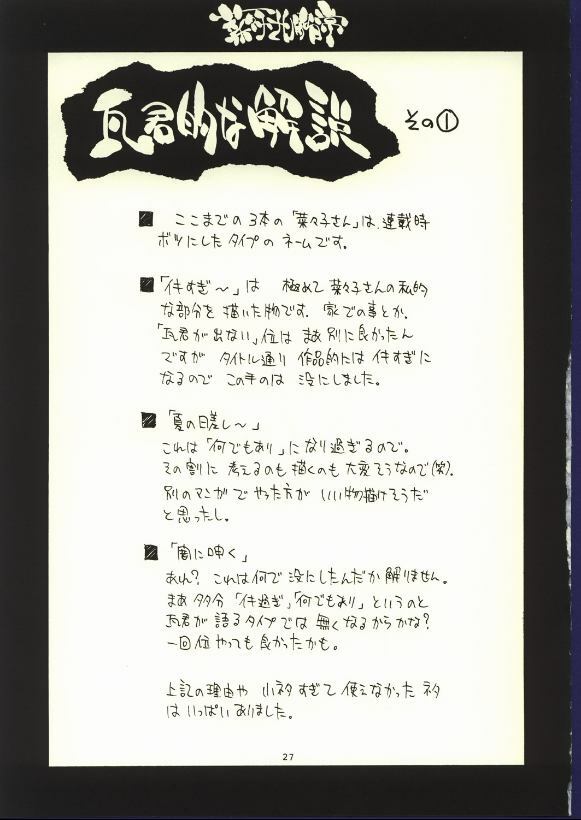 瓦君的な解説
その①
■ ここまでの3本の「菜々子さん」は、連載時
ボツにしたタイプのネームです。
■「イキすぎ〜」は 極めて菜々子さんの私的
な部分を描いた物です。家での事とか。
「瓦君が出ない」位は まあ別に良かったん
ですが タイトル通り 作品的には イキすぎに
なるので この手のは 没にしました。
■「夏の日差し〜」
これは「何でもあり」になり過ぎるので。
その割に 考えるのも描くのも 大変そうなので(笑)。
別のマンガで やった方が いい物描けそうだ
と思ったし。
■「闇に呻く」
あれ? これは何で 没にしたんだか 解りません。
まあ 多分「イキ過ぎ」「何でもあり」というのと
瓦君が 語るタイプでは 無くなるからかな?
一回位 やっても 良かったかも。
上記の理由や 小ネタすぎて 使えなかった ネタ
は いっぱい ありました。
27